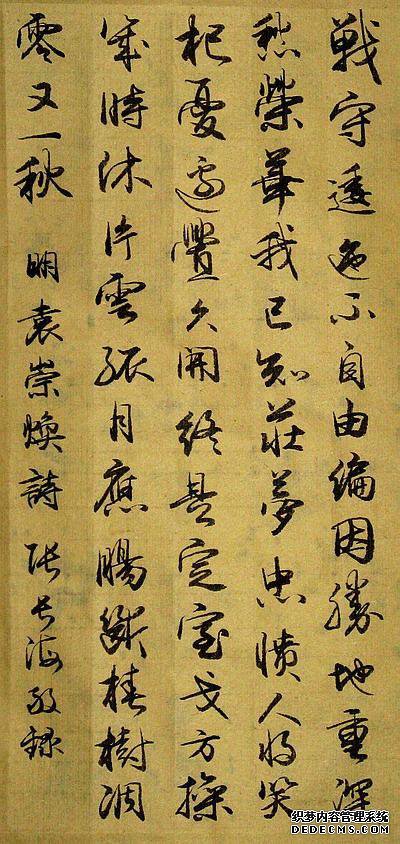 戰守逶迤不自由偏因勝地重深
愁榮華我已知莊夢忠憤人將笑
杞憂邊釁久開終是定室戈方操
幾時休片雲孤月應腸斷樁樹凋
零又一秋 明袁崇煥詩 張長海敬錄
织梦内容管理系统
DEDECMS.COM